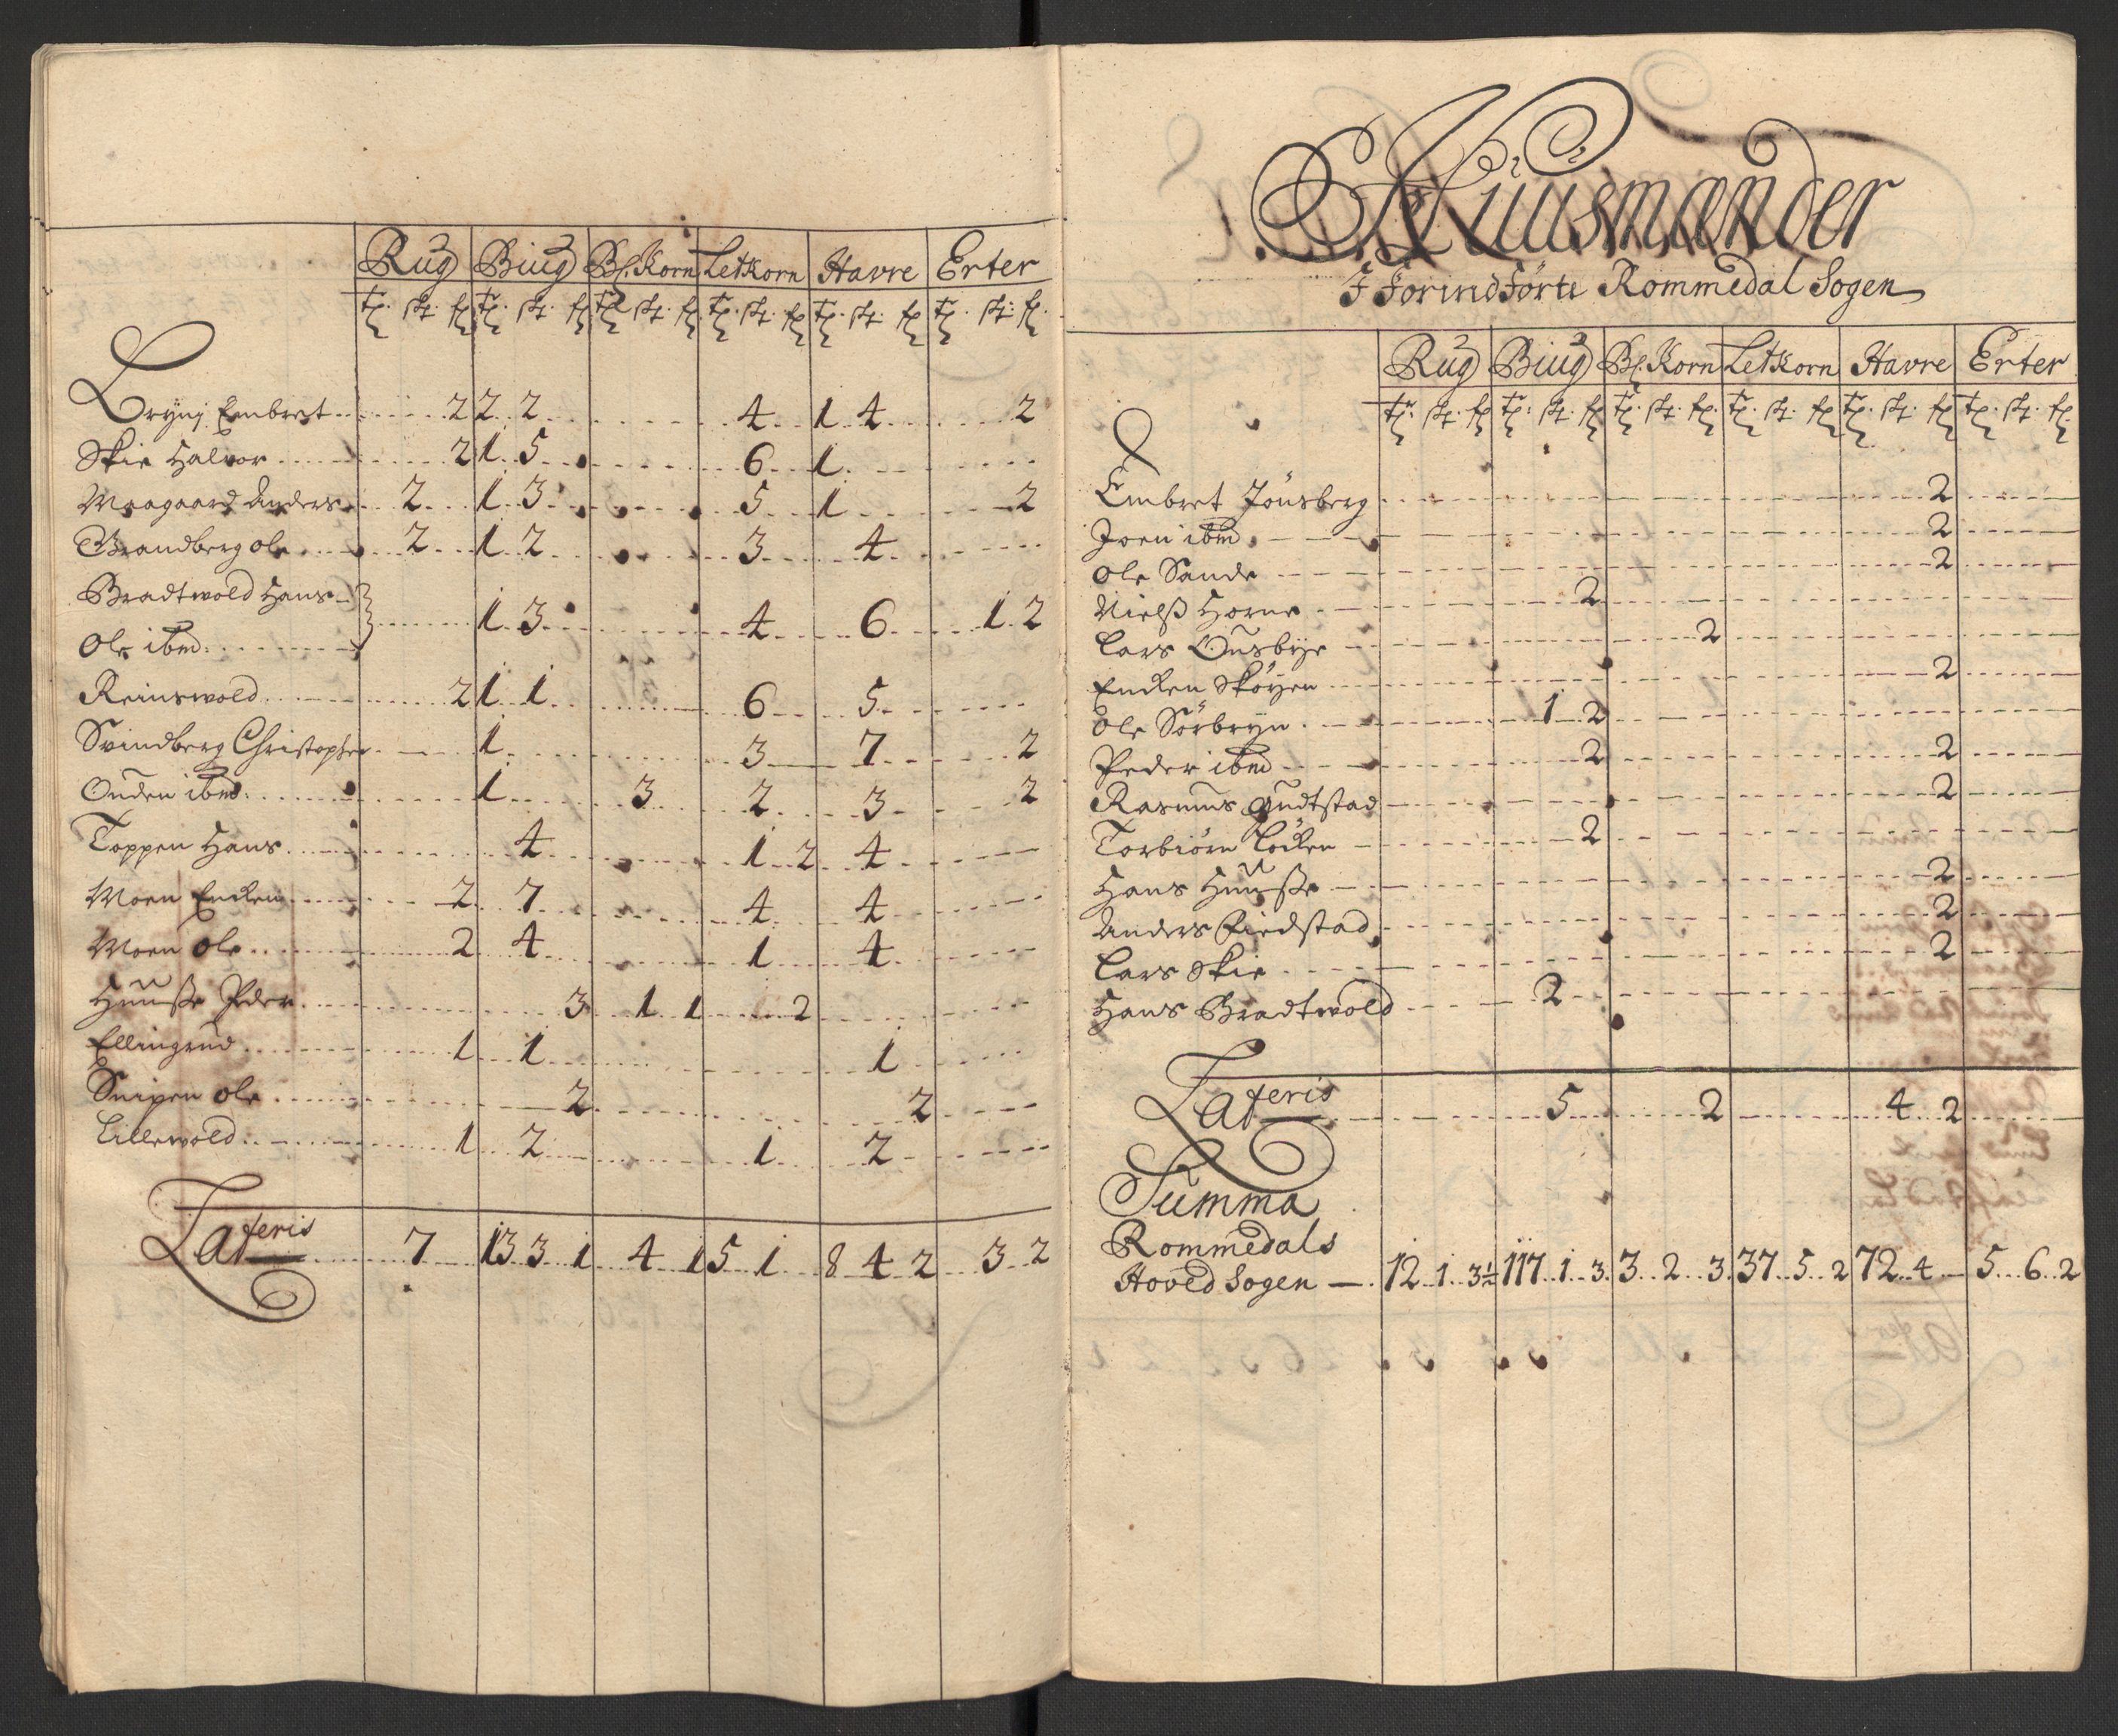 Rug Biug Bl. Korn Letkorn Havre Erter
tr. sk. fl tr. sk. fl tr. sk. fl tr. sk. fl tr. sk. fl tr. sk. fl.
Embret 2 2 2 4 1 4 2
Skie Halvor 2 1 5 6 1
Moagaard Anders 2 1 3 5 1 2
Brandberg ole 2 1 2 3 4
Bradtwold Hans
Ole ibm: 1 3 4 6 1 2
Reinswold 2 1 1 6 5
Svindberg Christopher 1 3 7 2
Ouden ibm 1 3 2 3 2
Toppen Hans 4 1 2 4
Moen Endren 2 7 4 4
Moen ole 2 4 1 4
Huusße Peder 3 1 1 2
Ellingrud 1 1 1
Snipen ole 2 2
Lillewold 1 2 1 2
Lateris 7 13 3 1 4 1 5 1 8 4 2 3 2
Huusmænder
I Forindførte Rommedal Sogen
Rug Biug Bl. Korn Letkorn Havre Erter
tr. sk. fl tr. sk. fl tr. sk. fl. tr. sk. fl tr. sk. fl tr. sk. fl.
Embret Jønsberg 2
Joen ibm 2
Ole Sande 2
Nielß Horne 2
Lars Ousbÿe 2
Endren Skøyen 2
Ole Sørbryn 1 2
Peder ibm 2 2
Rasmus Gudtstad 2
Torbiørn Løcken 2
Hans Huusße 2
Anders Fiedstad 2
Lars Skie 2
Hans Bradtwold 2
Lateris 5 2 4 2
Summa
Rommedals
Hoved Sogen 12 1 3½ 117 1 3 3 2 3 37 5 2 72 4 5 6 2